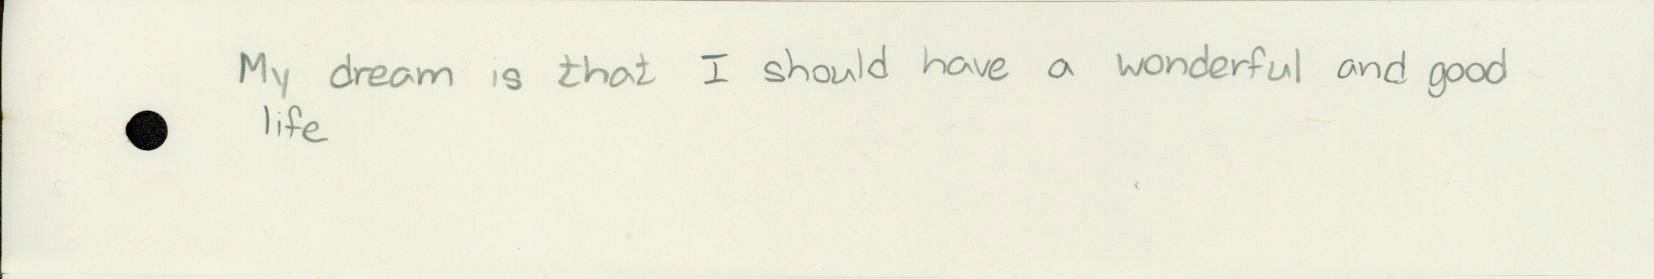 My dream is that I should have a wonderful and good
life